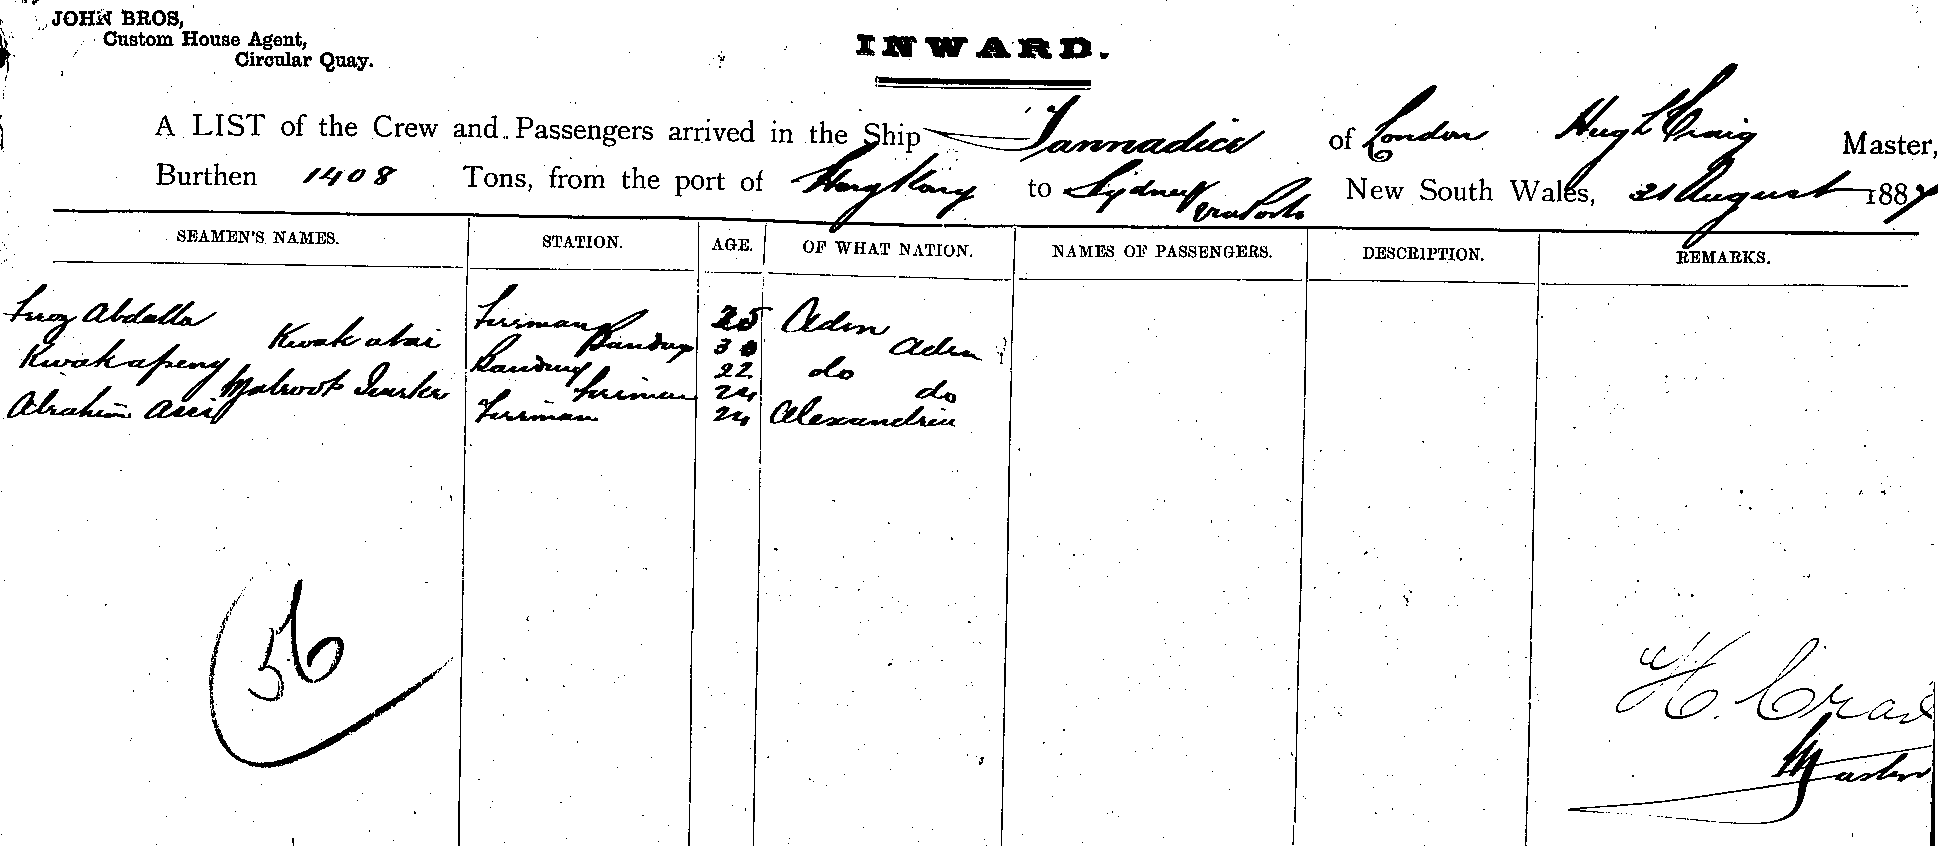 JOHN BROS,
Custom House Agent,
Circular Quay.
INWARD.
A LIST of the Crew and Passengers arrived in the Ship Tannadice of London Hugh Craig Master,
Burthen 1408 Tons, from the port of Hong Kong to Sydney via Ports New South Wales, 21 August 1887
SEAMEN'S NAMES. STATION. AGE. OF WHAT NATION. NAMES OF PASSENGERS. DESCRIPTION. REMARKS.
Feroz Abdalla Fireman 25 Aden
Kwok 30 Aden
Kwok 22 do
Mabrook Fireman 24 do
Fireman 24 Alexandria
56
H. Craig
Master